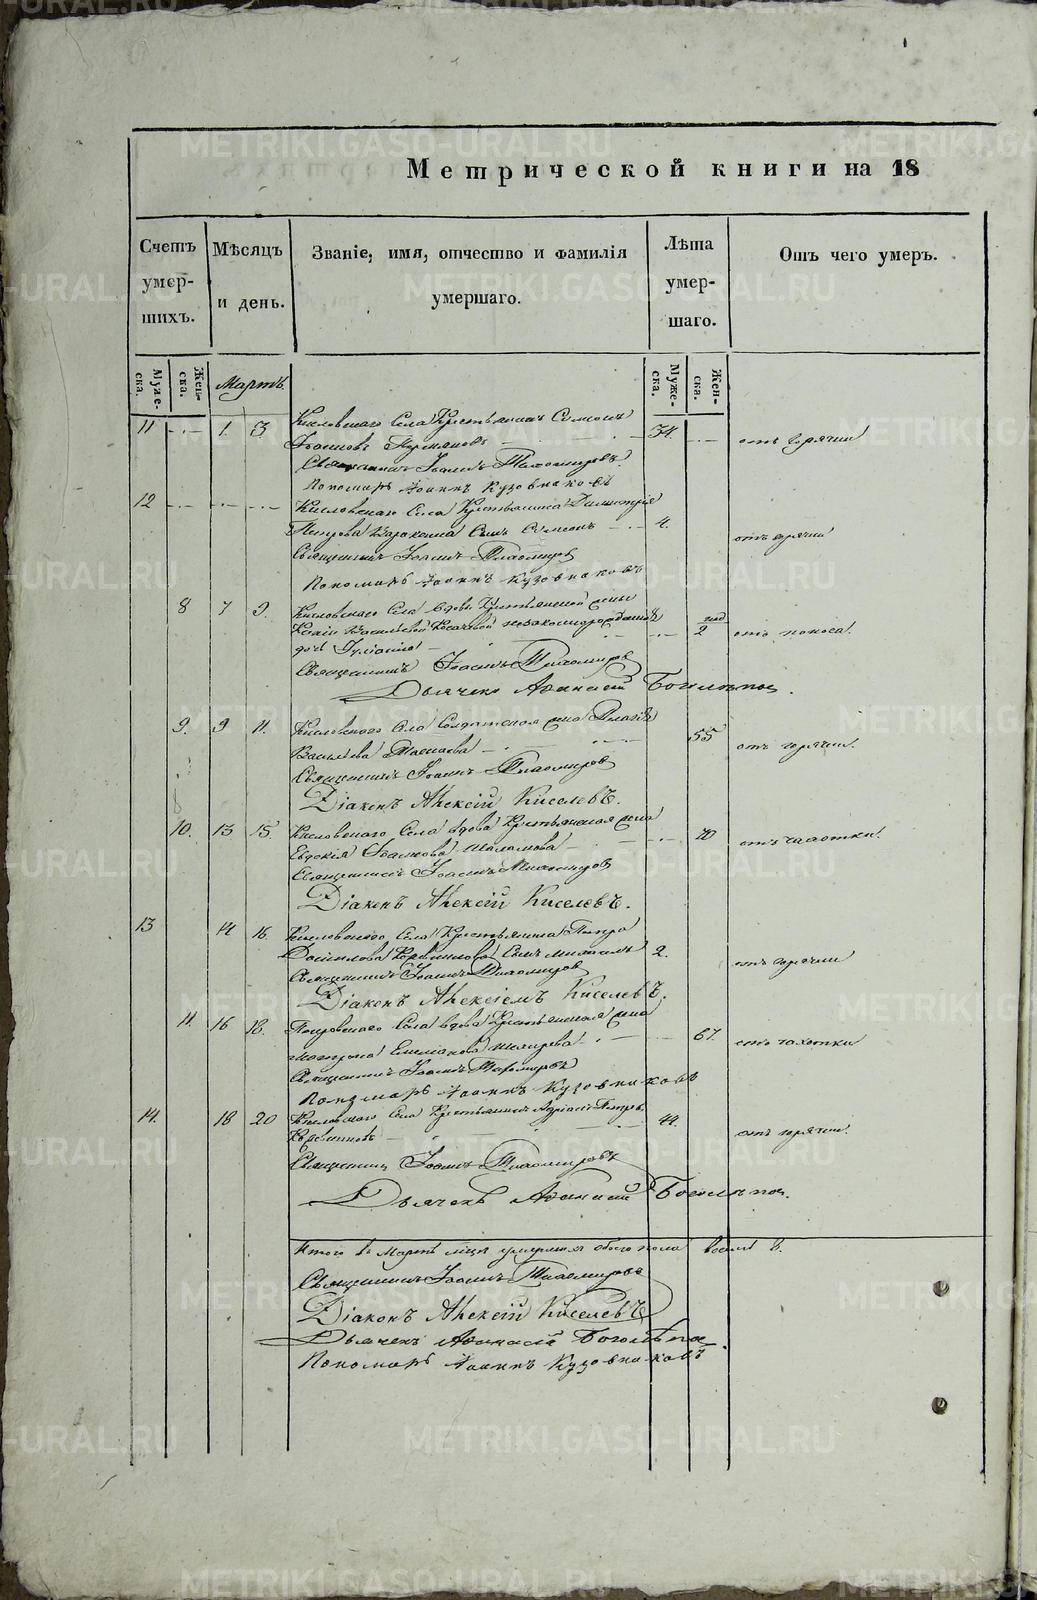 Метрической книги на 18
Счетъ умерших. Мѣсяцъ и день. Званіе, имя, отчество и фамилія умершаго. Лѣта умершаго. Отъ чего умеръ.
Муже-ска. Жен-ска. Мартъ. Муже-ска. Жен-ска.
11 1. 3. Кисловскаго Села Крестьянинъ Симеонъ
Іоанновъ 34. отъ горячки
Священникъ Іоаннъ Тихомировъ
Пономарь Іоаннъ Кузовниковъ
12 Кисловскаго Села Крестьянина Димитрія
Петрова Сынъ Симеонъ 4. отъ горячки
Священникъ Іоаннъ Тихомировъ
Пономарь Іоаннъ Кузовниковъ
8 7 9. Кисловскаго Села вдовы Крестьянской жены
незаконнорожденная 2 отъ поноса.
дочь Іуліанія
Священникъ Іоаннъ Тихомировъ
Дьячекъ Аѳанасій Боголѣпов.
9. 9 11. Кисловскаго Села Солдатская жена
Васильева 55 отъ горячки.
Священникъ Іоаннъ Тихомировъ
Діаконъ Алексій Киселевъ.
10. 13 15. Кисловскаго Села вдова Крестьянская жена
Евдокія Іоаннова 70 отъ чахотки.
Священникъ Іоаннъ Тихомировъ
Діаконъ Алексій Киселевъ.
13 14 16. Кисловскаго Села Крестьянина Петра
Данилова Сынъ Михаилъ 2. отъ горячки
Священникъ Іоаннъ Тихомировъ
Діаконъ Алексіемъ Киселевъ.
11. 16 18. Покровскаго Села вдова Крестьянская жена
Емелианова 67. отъ чахотки
Священникъ Іоаннъ Тихомировъ
Пономарь Іоаннъ Кузовниковъ
14. 18 20 Кисловскаго Села Крестьянинъ Петровъ
44. отъ горячки.
Священникъ Іоаннъ Тихомировъ
Дьячекъ Аѳанасій Боголѣпов.
Итого въ Мартѣ мѣсяцѣ умершихъ обоего пола восемь 8.
Священникъ Іоаннъ Тихомировъ
Діаконъ Алексій Киселевъ
Дьячекъ Аѳанасій Боголѣпов.
Пономарь Іоаннъ Кузовниковъ
METRIKI.GASO-URAL.RU